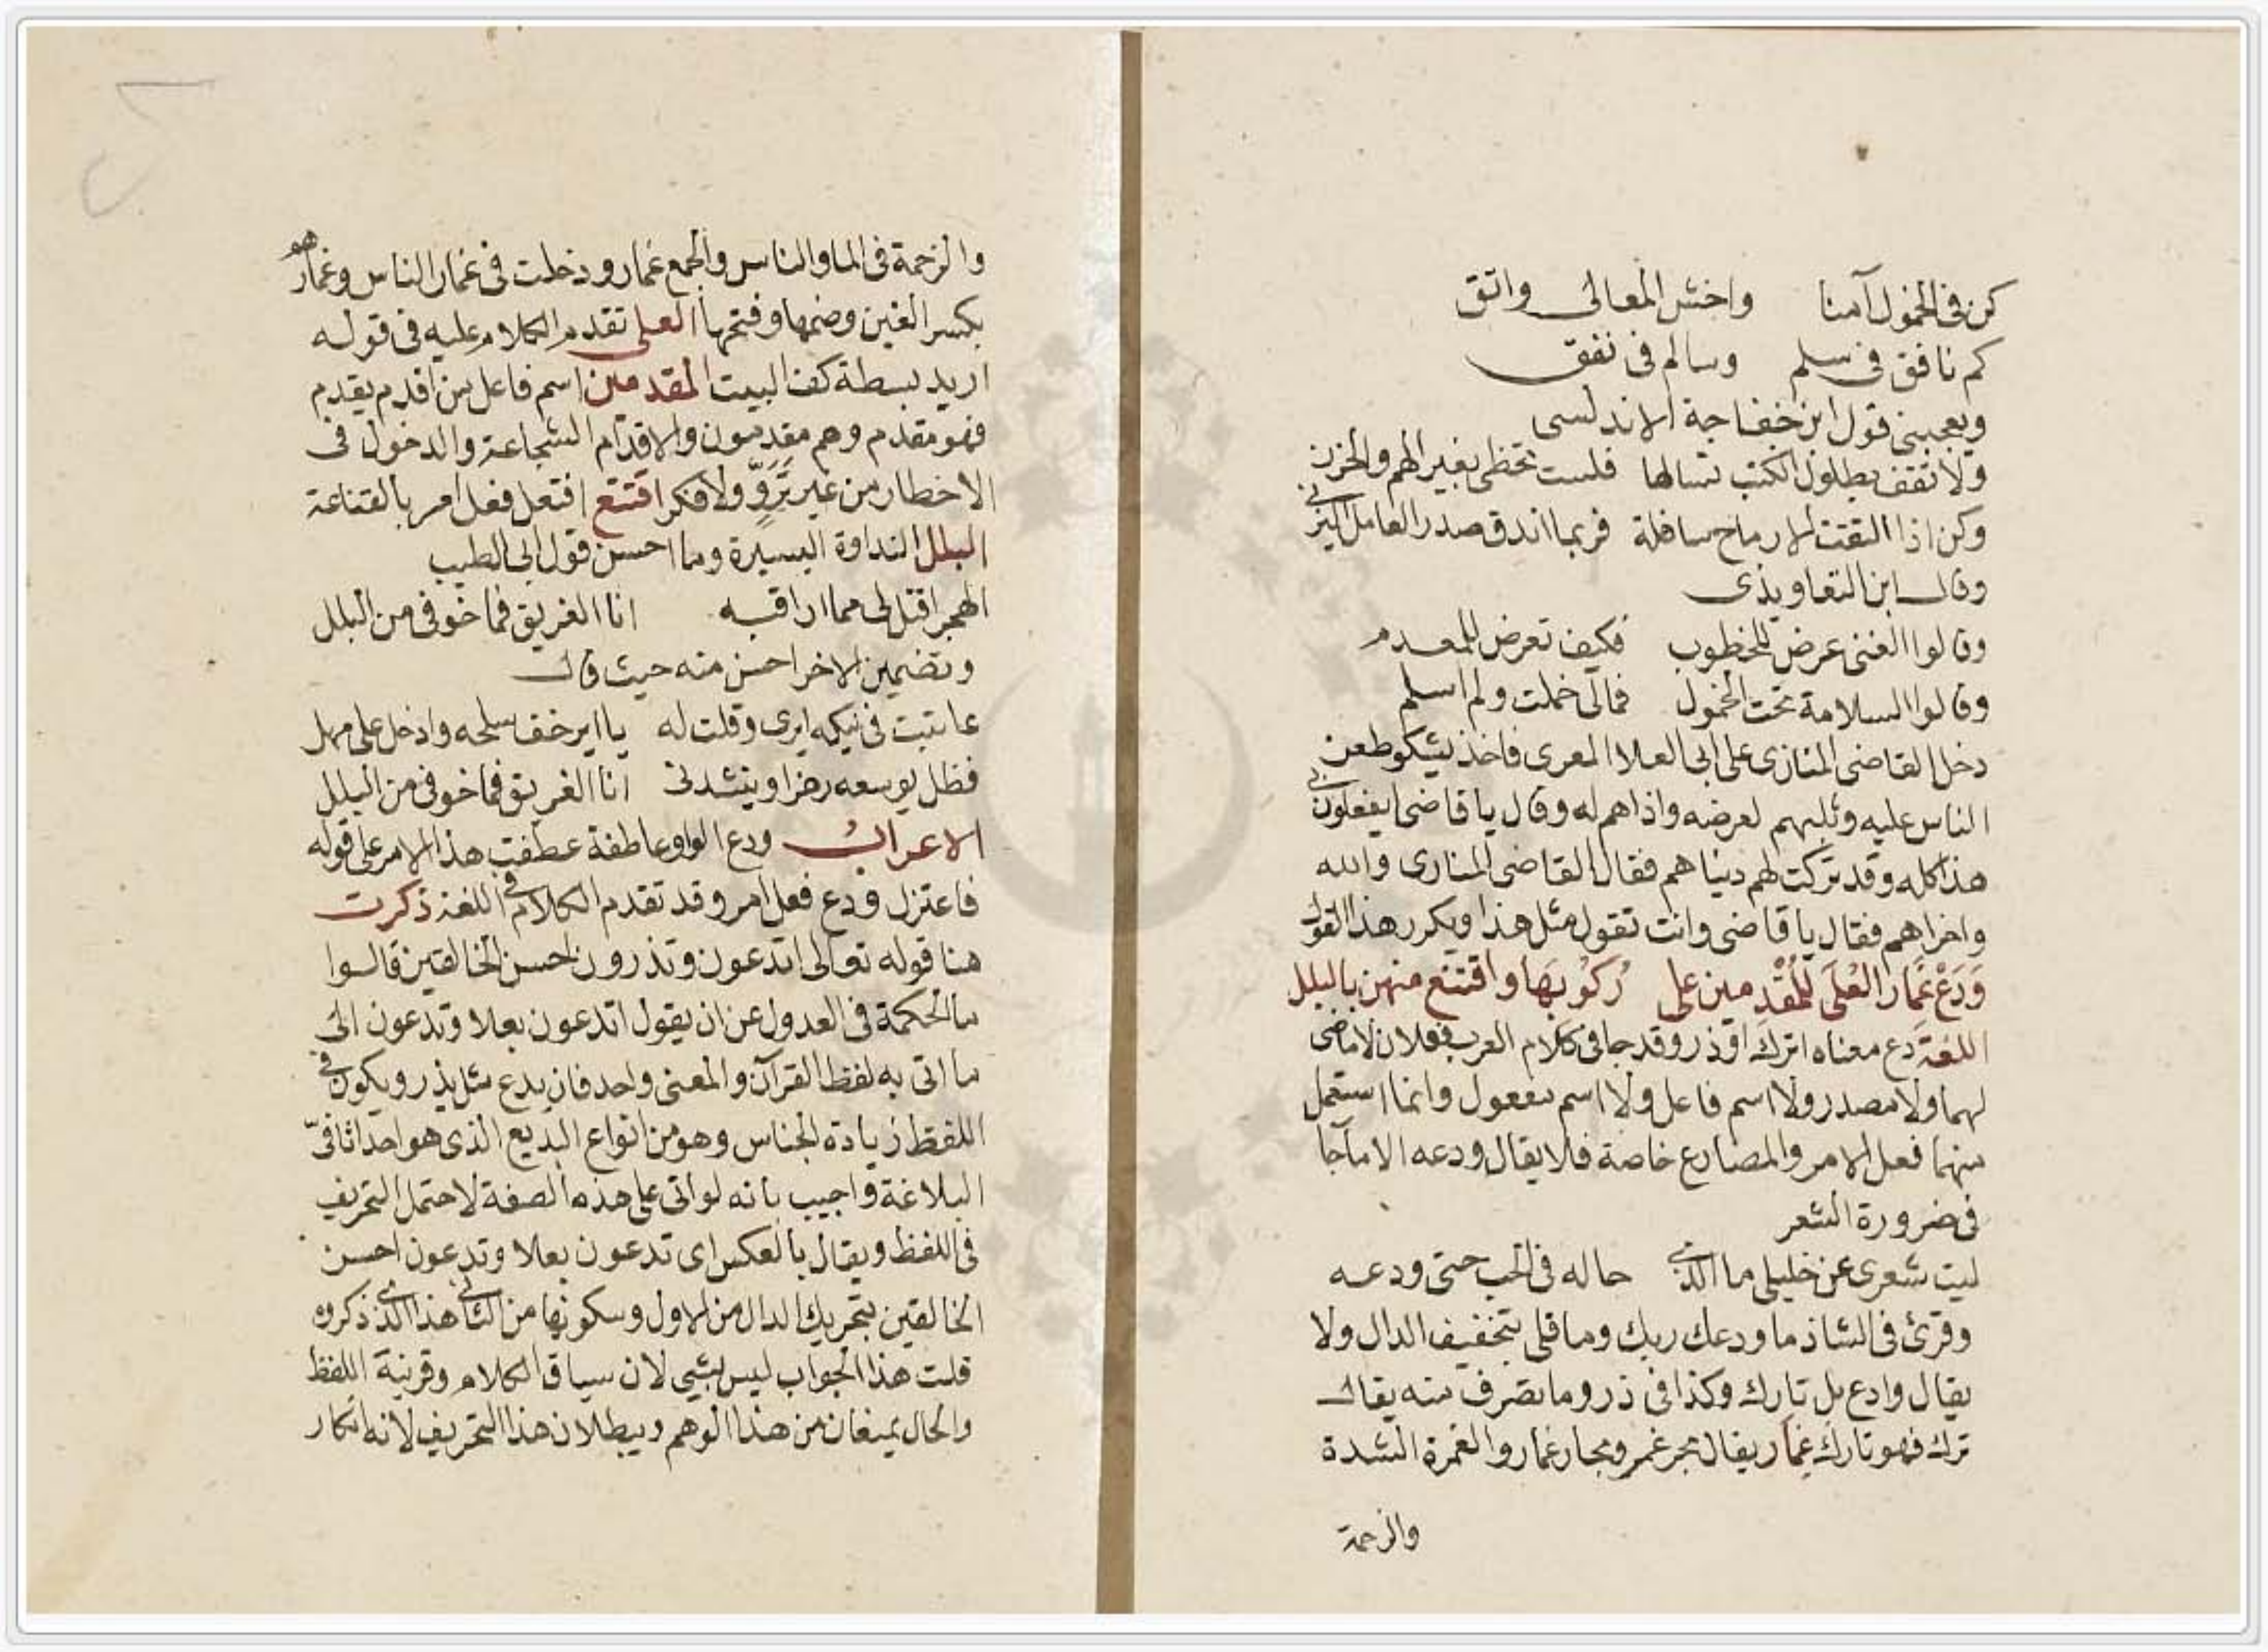 كن فى الخمول آمنا واخش المعالى واتق
كم نافق فى سلم وسالم فى نفق
ويعجبنى قول ابن خفاجة الاندلسى
ولا تقف بطلول الكتب تسالها فلست تحظى بغير الهم والحزن
وكن اذا التقت الارماح سافلة فربما اندق صدر العامل اليزنى
وقال ابن التعاويذى
وقالوا الغنى عرض للخطوب فكيف تعرض للمعدم
وقالوا السلامة تحت الخمول فمالى خملت ولم اسلم
دخل القاضى المنازى على ابى العلا المعرى فاخذ يشكو طعن
الناس عليه وثلبهم لعرضه واذاهم له وقال يا قاضى ايفعلون بى
هذا كله وقد تركت لهم دنياهم فقال القاضى المنارى والله
واخراهم فقال يا قاضى وانت تقول مثل هذا ويكرر هذا القول
وَدَعْ غمَار العُلَى لِلمُقْدِمين على رُكوُبهَا واقتنع منهن بالبلل
اللغة دع معناه اترك او ذر وقد جا فى كلام العرب فعلان لا ماضى
لهما ولا مصدر ولا اسم فاعل ولا اسم مفعول وانما استعمل
منهما فعل الامر والمضارع خاصة فلا يقال ودعه الا ما جا
فى ضرورة الشعر
ليت شعرى عن خليلى ما الذى حاله فى الحب حتى ودعه
وقرئ فى الشاذ ما ودعك ربك وما قلى بتخفيف الدال ولا
يقال وادع بل تارك وكذا فى ذر وما تصرف منه يقال
ترك فهو تارك غمار يقال بحر غمر وبحار غمار والغمرة الشدة
والزحمة
والزحمة فى الما والناس والجمع غمار ودخلت فى غمار الناس وغمار هو
بكسر الغين وضمها وفتحها العلى تقدم الكلام عليه فى قوله
اريد بسطة كف البيت المقدمين اسم فاعل من اقدم يقدم
فهو مقدم وهم مقدمون والاقدام الشجاعة والدخول فى
الاخطار من غير تَرَوٍّ ولا فكر اقتنع افتعل فعل امر بالقناعة
البلل النداوة اليسيرة وما احسن قول ابى الطيب
الهجر اقتل لى مما اراقبه انا الغريق فما خوفى من البلل
وتضمين الاخر احسن منه حيث قال
عاتبت فى نيكه ايرى وقلت له يا اير خف سلحه وادخل على مهل
فظل يوسعه رهزا وينشدنى انا الغريق فما خوفى من البلل
الاعراب ودع الواو عاطفة عطفت هذا الامر على قوله
فاعتزل ودع فعل امر وقد تقدم الكلام فى اللغة ذكرت
هنا قوله تعالى اتدعون وتذرون احسن الخالقين قالوا
ما الحكمة فى العدول عن ان يقول اتدعون بعلا وتدعون الى
ما اتى به لفظ القرآن والمعنى واحد فان يدع مثل يذر ويكون فى
اللفظ زيادة الجناس وهو من انواع البديع الذى هو احد اثافىّ
البلاغة واجيب بانه لو اتى على هذه الصفة لاحتمل التحريف
فى اللفظ ويقال بالعكس اى تدعون بعلا وتدعون احسن
الخالقين بتحريك الدال من الاول وسكونها من الثانى هذا الذى ذكروه
قلت هذا الجواب ليس بشى لان سياق الكلام وقرينة اللفظ
والحال يمنعان من هذا الوهم ويبطلان هذا التحريف لانه انكار